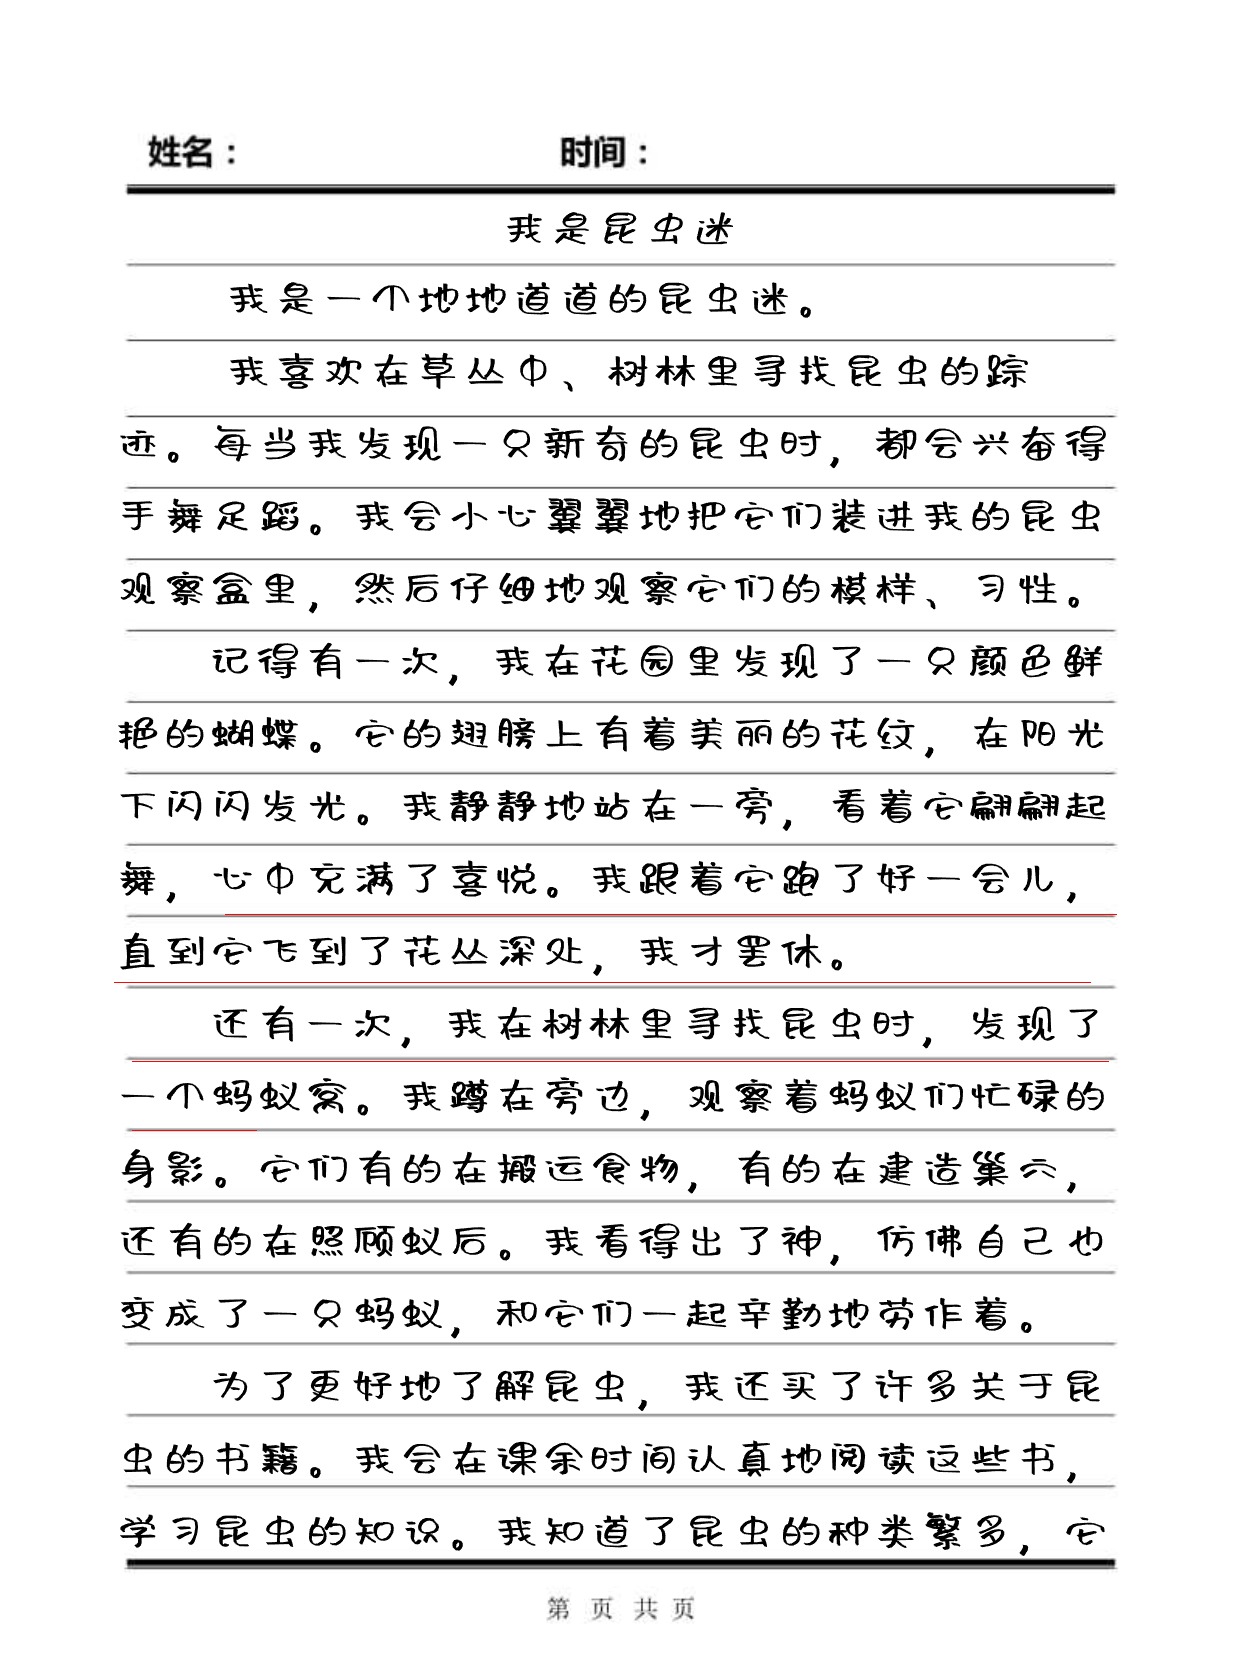 姓名： 时间：
我是昆虫迷
我是一个地地道道的昆虫迷。
我喜欢在草丛中、树林里寻找昆虫的踪
迹。每当我发现一只新奇的昆虫时，都会兴奋得
手舞足蹈。我会小心翼翼地把它们装进我的昆虫
观察盒里，然后仔细地观察它们的模样、习性。
记得有一次，我在花园里发现了一只颜色鲜
艳的蝴蝶。它的翅膀上有着美丽的花纹，在阳光
下闪闪发光。我静静地站在一旁，看着它翩翩起
舞，心中充满了喜悦。我跟着它跑了好一会儿，
直到它飞到了花丛深处，我才罢休。
还有一次，我在树林里寻找昆虫时，发现了
一个蚂蚁窝。我蹲在旁边，观察着蚂蚁们忙碌的
身影。它们有的在搬运食物，有的在建造巢穴，
还有的在照顾蚁后。我看得出了神，仿佛自己也
变成了一只蚂蚁，和它们一起辛勤地劳作着。
为了更好地了解昆虫，我还买了许多关于昆
虫的书籍。我会在课余时间认真地阅读这些书，
学习昆虫的知识。我知道了昆虫的种类繁多，它
第 页 共 页